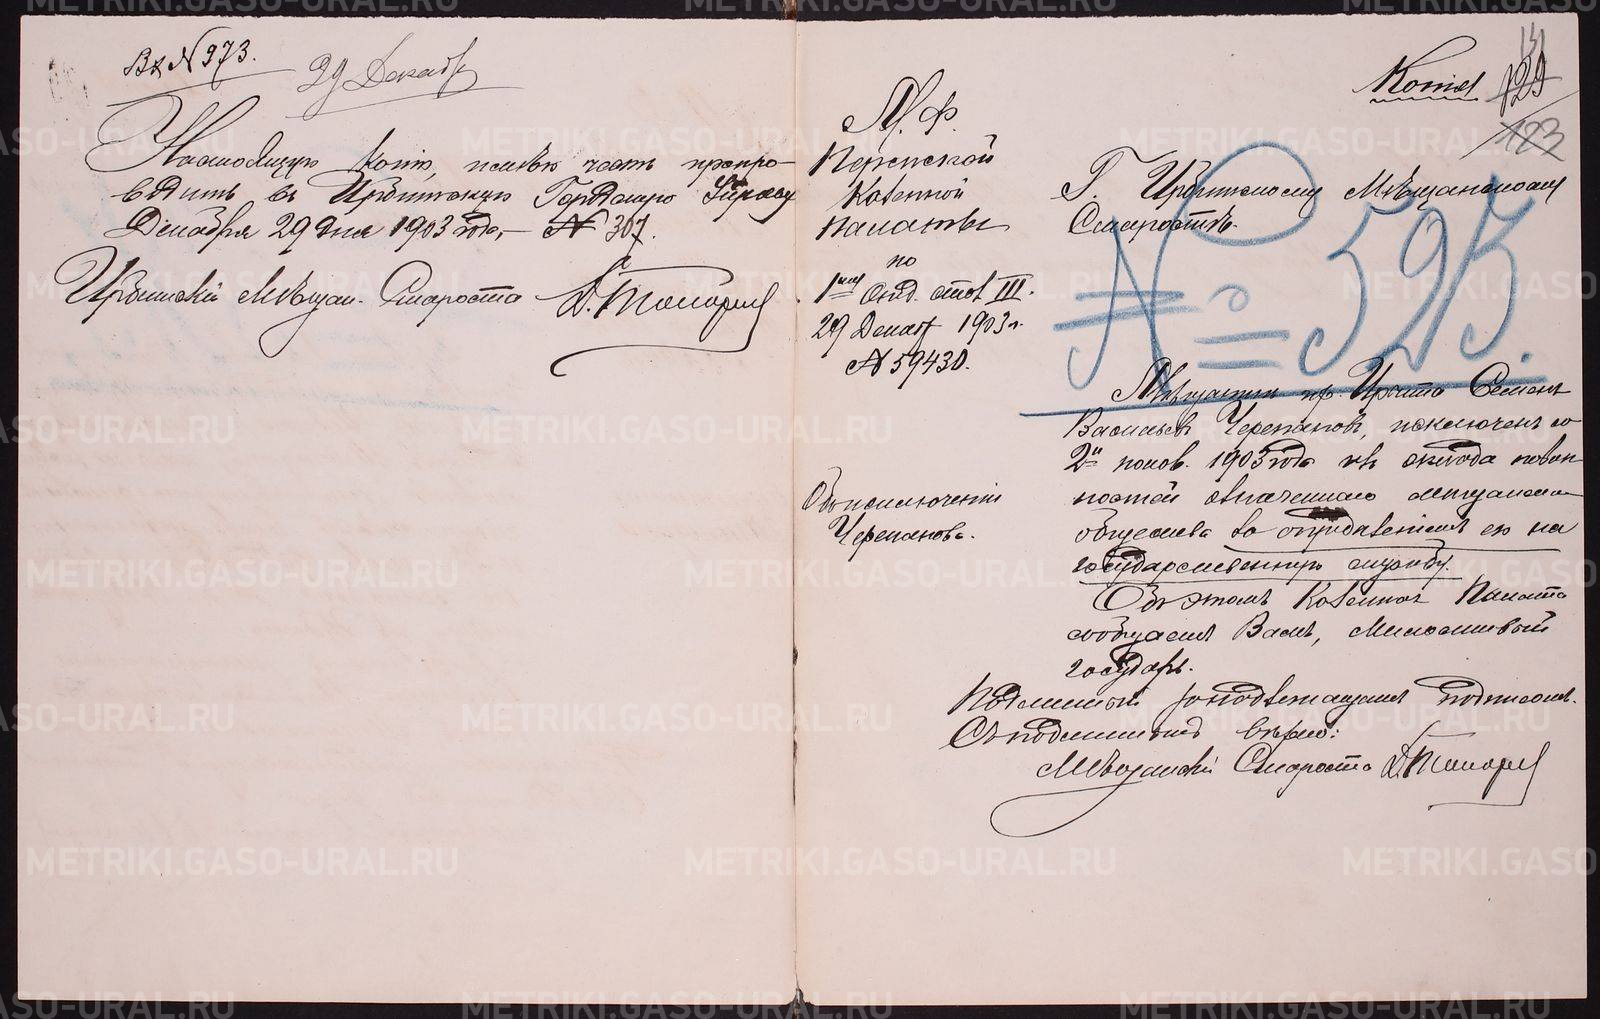 Вх № 973.
29 Декабр
Настоящую копію, имѣю честь препро-
водить въ Ирбитскую Городскую Управу
Декабря 29 дня 1903 года,— № 307.
Ирбитскій Мѣщан. Староста
Копія
129
123
М. Ф.
Пермской
Казенной
Палаты
по
1му Отд. стол III.
29 Декаб 1903 г.
№ 59430.
Объ исключеніи
Черепанова.
Г. Ирбитскому Мѣщанскому
Старостѣ.
№ = 595.
Мѣщанин гор. Ирбита Семенъ
Васильев Черепановъ, исключенъ со
2й полов. 1903 года изъ оклада повин
ностей означеннаго мѣщанска
общества за опредѣленіемъ его на
государственную службу.
Объ этомъ Казенная Палата
сообщаетъ Вамъ, Милостивый
Государь.
Подлинный за надлежащимъ подписомъ.
Съ подлиннымъ вѣрно:
Мѣщанскій Староста
METRIKI.GASO-URAL.RU